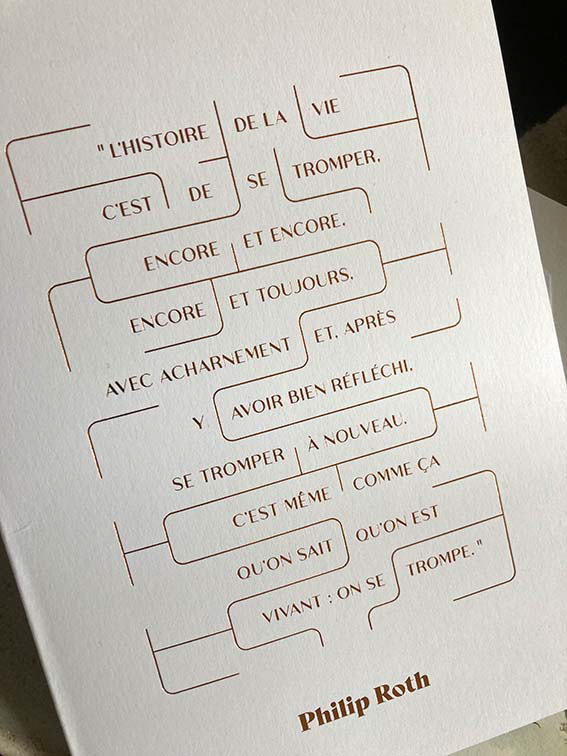 " L'HISTOIRE DE LA VIE
C'EST DE SE TROMPER,
ENCORE ET ENCORE,
ENCORE ET TOUJOURS,
AVEC ACHARNEMENT ET, APRÈS
Y AVOIR BIEN RÉFLÉCHI,
SE TROMPER À NOUVEAU.
C'EST MÊME COMME ÇA
QU'ON SAIT QU'ON EST
VIVANT : ON SE TROMPE. "
Philip Roth